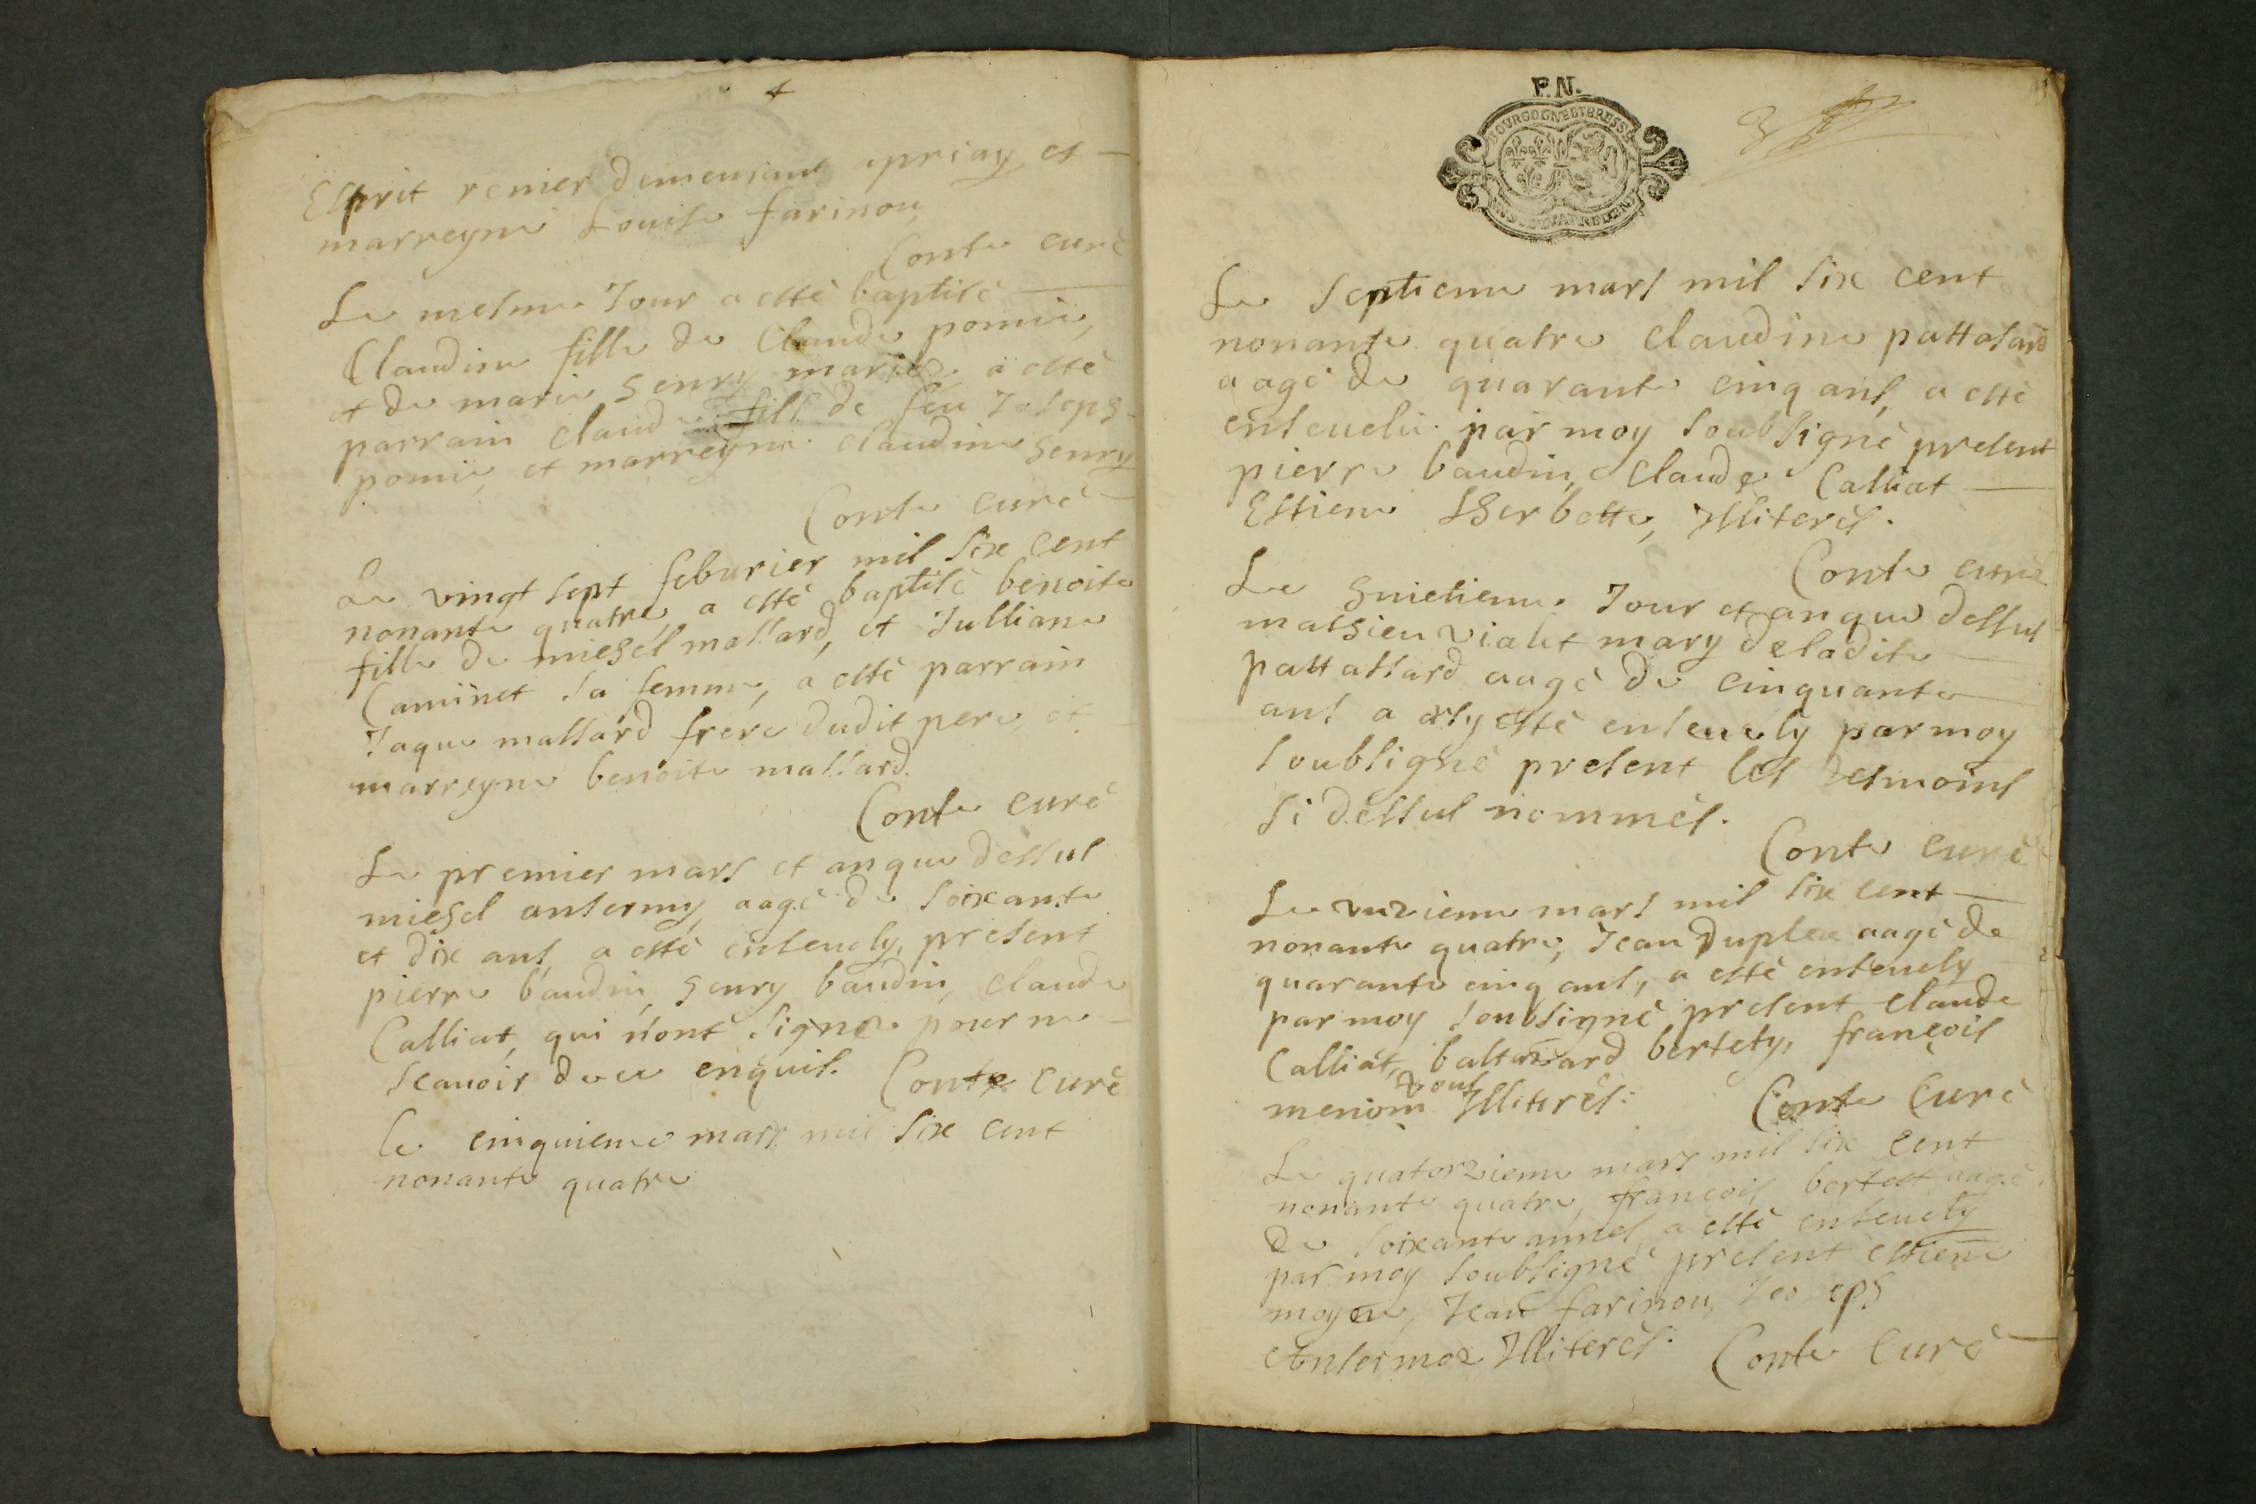 Esprit renier demeurant a priay et
marreyne Louise farinou
Conte curé
Le mesme Jour a esté baptisé
Claudine fille de Claude pomie,
et de marie henry mariez a esté
parrain claude fils de feu Joseph
pomie, et marreyne claudine henry
Conte curé
Le vingt sept feburier mil six cent
nonante quatre a esté baptisé benoite
fille de miehel mallard, et Jullianne
Caminet sa femme, a esté parrain
Jaque mallard frere dudit pere, et
marreyne benoite mallard.
Conte curé
Le premier mars et an que dessus
miehel ansermy aagé de soixante
et dix ans a esté enseuely, present
pierre baudin, henry baudin, claude
Calliat, qui n'ont signez pour ne
scauoir de ce enquis. Conte curé
le cinquieme mars mil six cent
nonante quatre
F.N.
BOURGOGNE ET BRESSE
3
Le septieme mars mil six cent
nonante quatre claudine pattasard
aagé de quarante cinq ans, a esté
enseuelie par moy soubsigné present
pierre baudin, claude Calliat
Estiene Lherbette, Illiterés.
Conte curé
Le huictieme Jour et an que dessus
mathieu vialet mary deladite
pattallard aagé de cinquante
ans a esté enseuely par moy
soubsigné present les tesmoins
si dessus nommés.
Conte curé
Le unzieme mars mil six cent
nonante quatre, Jean duplex aagé de
quarante cinq ans, a esté enseuely
par moy soubsigné present claude
Calliat, baltazard bertety, françois
menoin tous Illiterés. Conte Curé
Le quatorzieme mars mil six cent
nonante quatre, françois bertet aagé
de soixante annes, a esté enseuely
par moy soubsigné present estiene
moyne, Jean farinou, Joseph
Ansermoz Illiterés. Conte Curé